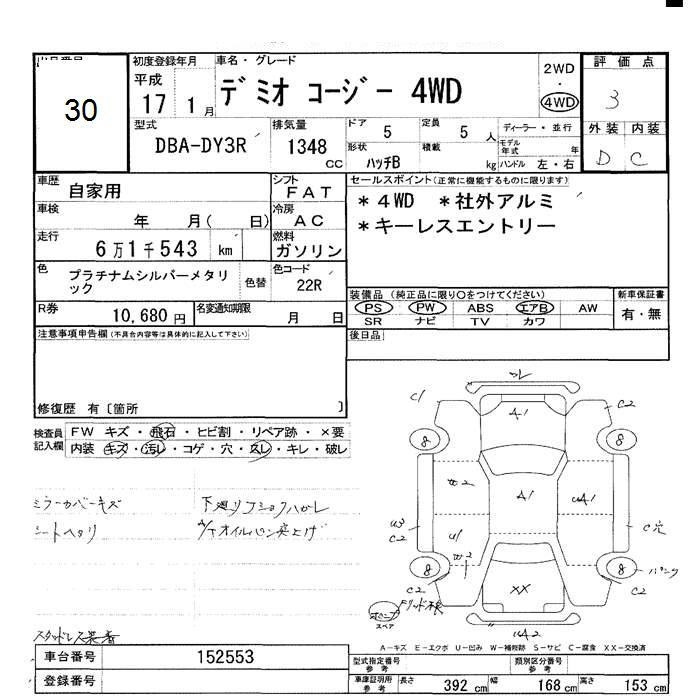 30
初度登録年月
平成
17 1月
車名・グレード
デミオ コージー 4WD
2WD
・
4WD
評価点
3
型式
DBA-DY3R
排気量
1348 CC
ドア 5
定員 5 人
ディーラー・並行
外装 内装
D C
形状 ハッチB
積載 kg
モデル年式 年
ハンドル 左・右
車歴 自家用
シフト FAT
セールスポイント(正常に機能するものに限ります)
*4WD *社外アルミ
*キーレスエントリー
車検 年 月( 日)
冷房 AC
走行 6万1千543 km
燃料 ガソリン
色 プラチナムシルバーメタリック
色替
色コード 22R
R券 10,680円
名変通知期限 月 日
装備品(純正品に限り○をつけてください)
PS PW ABS エアB AW
SR ナビ TV カワ
新車保証書
有・無
注意事項申告欄(不具合内容等は具体的に記入して下さい)
後日品
修復歴 有〔箇所 〕
検査員記入欄
FW キズ・飛石・ヒビ割・リペア跡・×要
内装 キズ・汚レ・コゲ・穴・スレ・キレ・破レ
ミラーカバーキズ
シートヘタリ
A/Tオイルパン突上げ
スタッドレス装着
C1
A1
C2
8
8
W2
A1
UA1
W3
C2
U1
C穴
W2
8
8
パンク
C2
XX
C2
スペア
UA2
A-キズ E-エクボ U-凹み W-補修跡 S-サビ C-腐食 XX-交換済
車台番号 152553
登録番号
型式指定番号 参考
類別区分番号 参考
車庫証明用 参考
長さ 392 cm
幅 168 cm
高さ 153 cm